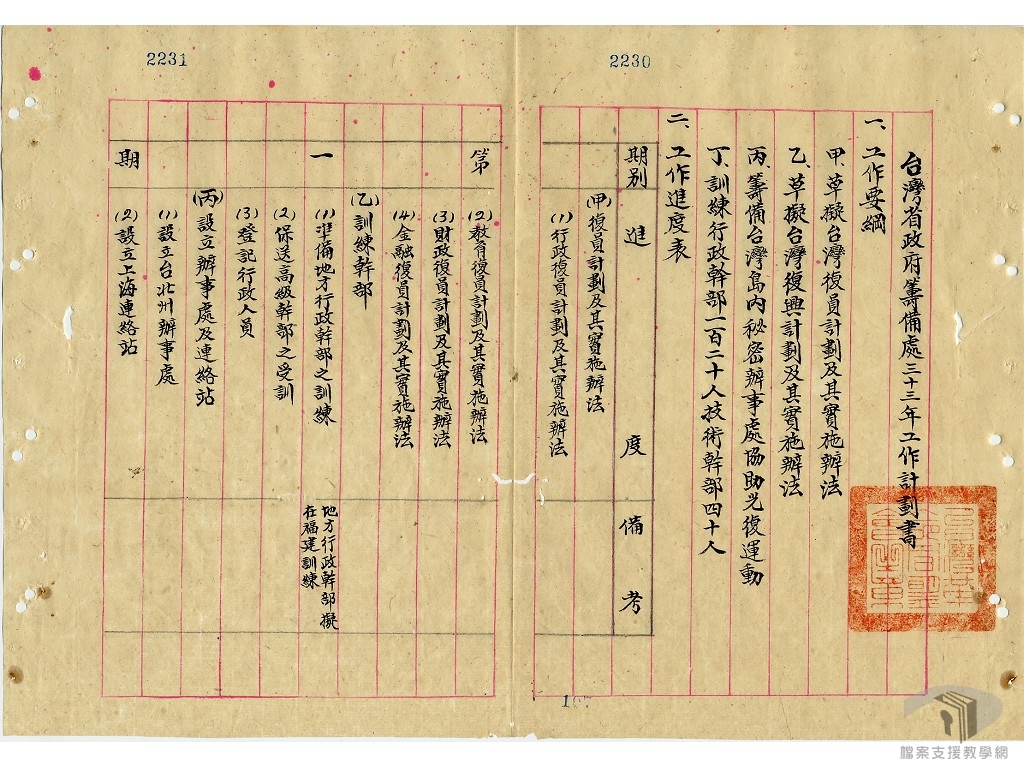 2230
台灣省政府籌備處三十三年工作計劃書
一、工作要綱
甲、草擬台灣復員計劃及其實施辦法
乙、草擬台灣復興計劃及其實施辦法
丙、籌備台灣島內秘密辦事處協助光復運動
丁、訓練行政幹部一百二十人技術幹部四十人
二、工作進度表
期別 進度 備考
(甲)復員計劃及其實施辦法
(1)行政復員計劃及其實施辦法
2231
第
(2)教育復員計劃及其實施辦法
(3)財政復員計劃及其實施辦法
(4)金融復員計劃及其實施辦法
(乙)訓練幹部
一
(1)準備地方行政幹部之訓練
地方行政幹部擬
在福建訓練
(2)保送高級幹部之受訓
(3)登記行政人員
(丙)設立辦事處及連絡站
(1)設立台北州辦事處
期
(2)設立上海連絡站
檔案支援教學網